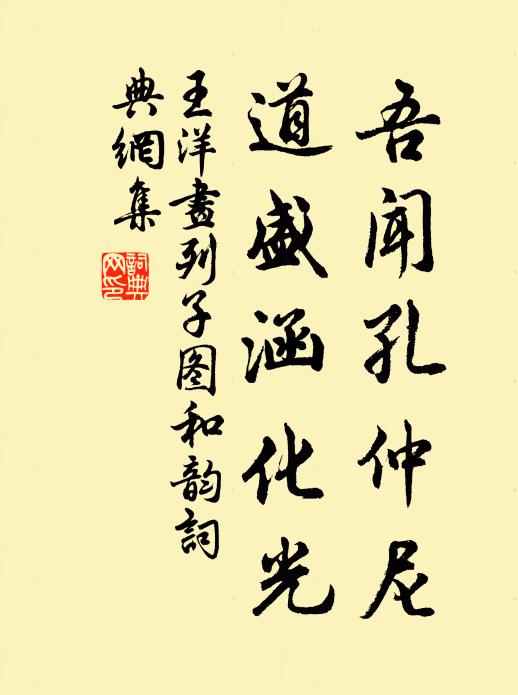 吾闻孔仲尼
道盛涵化光
王洋畫列子图和韵詞
典網集
詞典网印